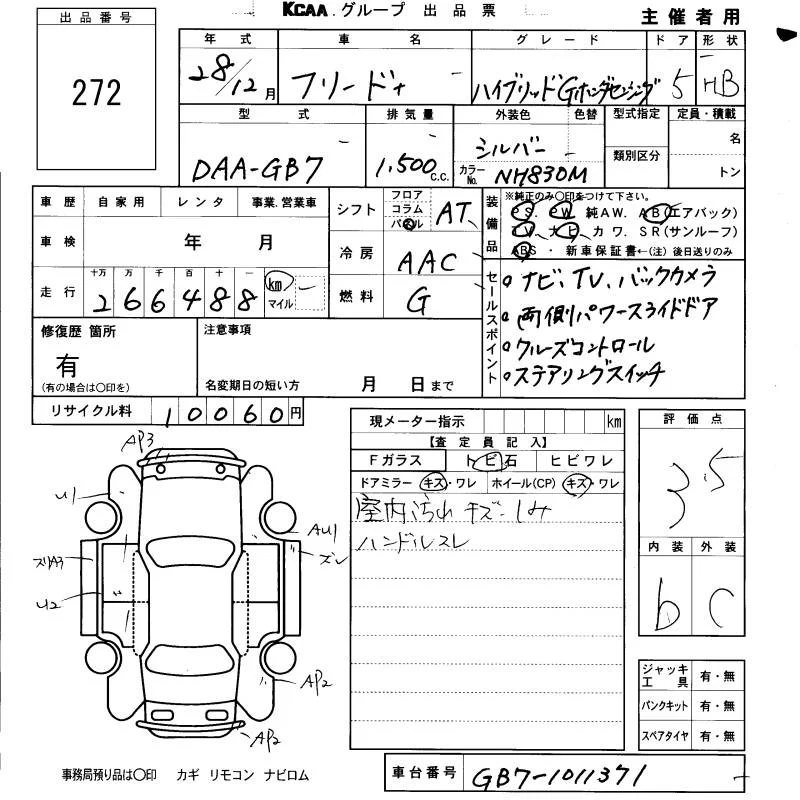 KCAA.グループ 出品票
主催者用
出品番号
272
年式 車名 グレード ドア 形状
28/12月 フリード+ ハイブリッドGホンダセンシング 5 HB
型式 排気量 外装色 色替 型式指定 定員・積載
DAA-GB7 1,500 c.c. シルバー 名
カラーNo. NH830M 類別区分 トン
車歴 自家用 レンタ 事業.営業車
車検 年 月
走行 十万 万 千 百 十 一
266488 km マイル
シフト フロア コラム パネル AT
冷房 AAC
燃料 G
装備品 ※純正のみ○印をつけて下さい。
PS. PW. 純AW. AB(エアバック)
TV. ナビ. カワ. SR(サンルーフ)
ABS ・ 新車保証書←(注) 後日送りのみ
セールスポイント
ナビ、TV、バックカメラ
両側パワースライドドア
クルーズコントロール
ステアリングスイッチ
修復歴 箇所
有
(有の場合は○印を)
注意事項
名変期日の短い方 月 日まで
リサイクル料 10060円
現メーター指示 km
【査定員記入】
Fガラス トビ石 ヒビワレ
ドアミラー キズ・ワレ ホイール(CP) キズ・ワレ
室内汚れ キズ・しみ
ハンドルスレ
評価点
3.5
内装 外装
b C
ジャッキ工具 有・無
パンクキット 有・無
スペアタイヤ 有・無
AP3
U1
AU1
ズレ
スリA3
U2
AP2
AP2
事務局預り品は○印 カギ リモコン ナビロム
車台番号 GB7-1011371